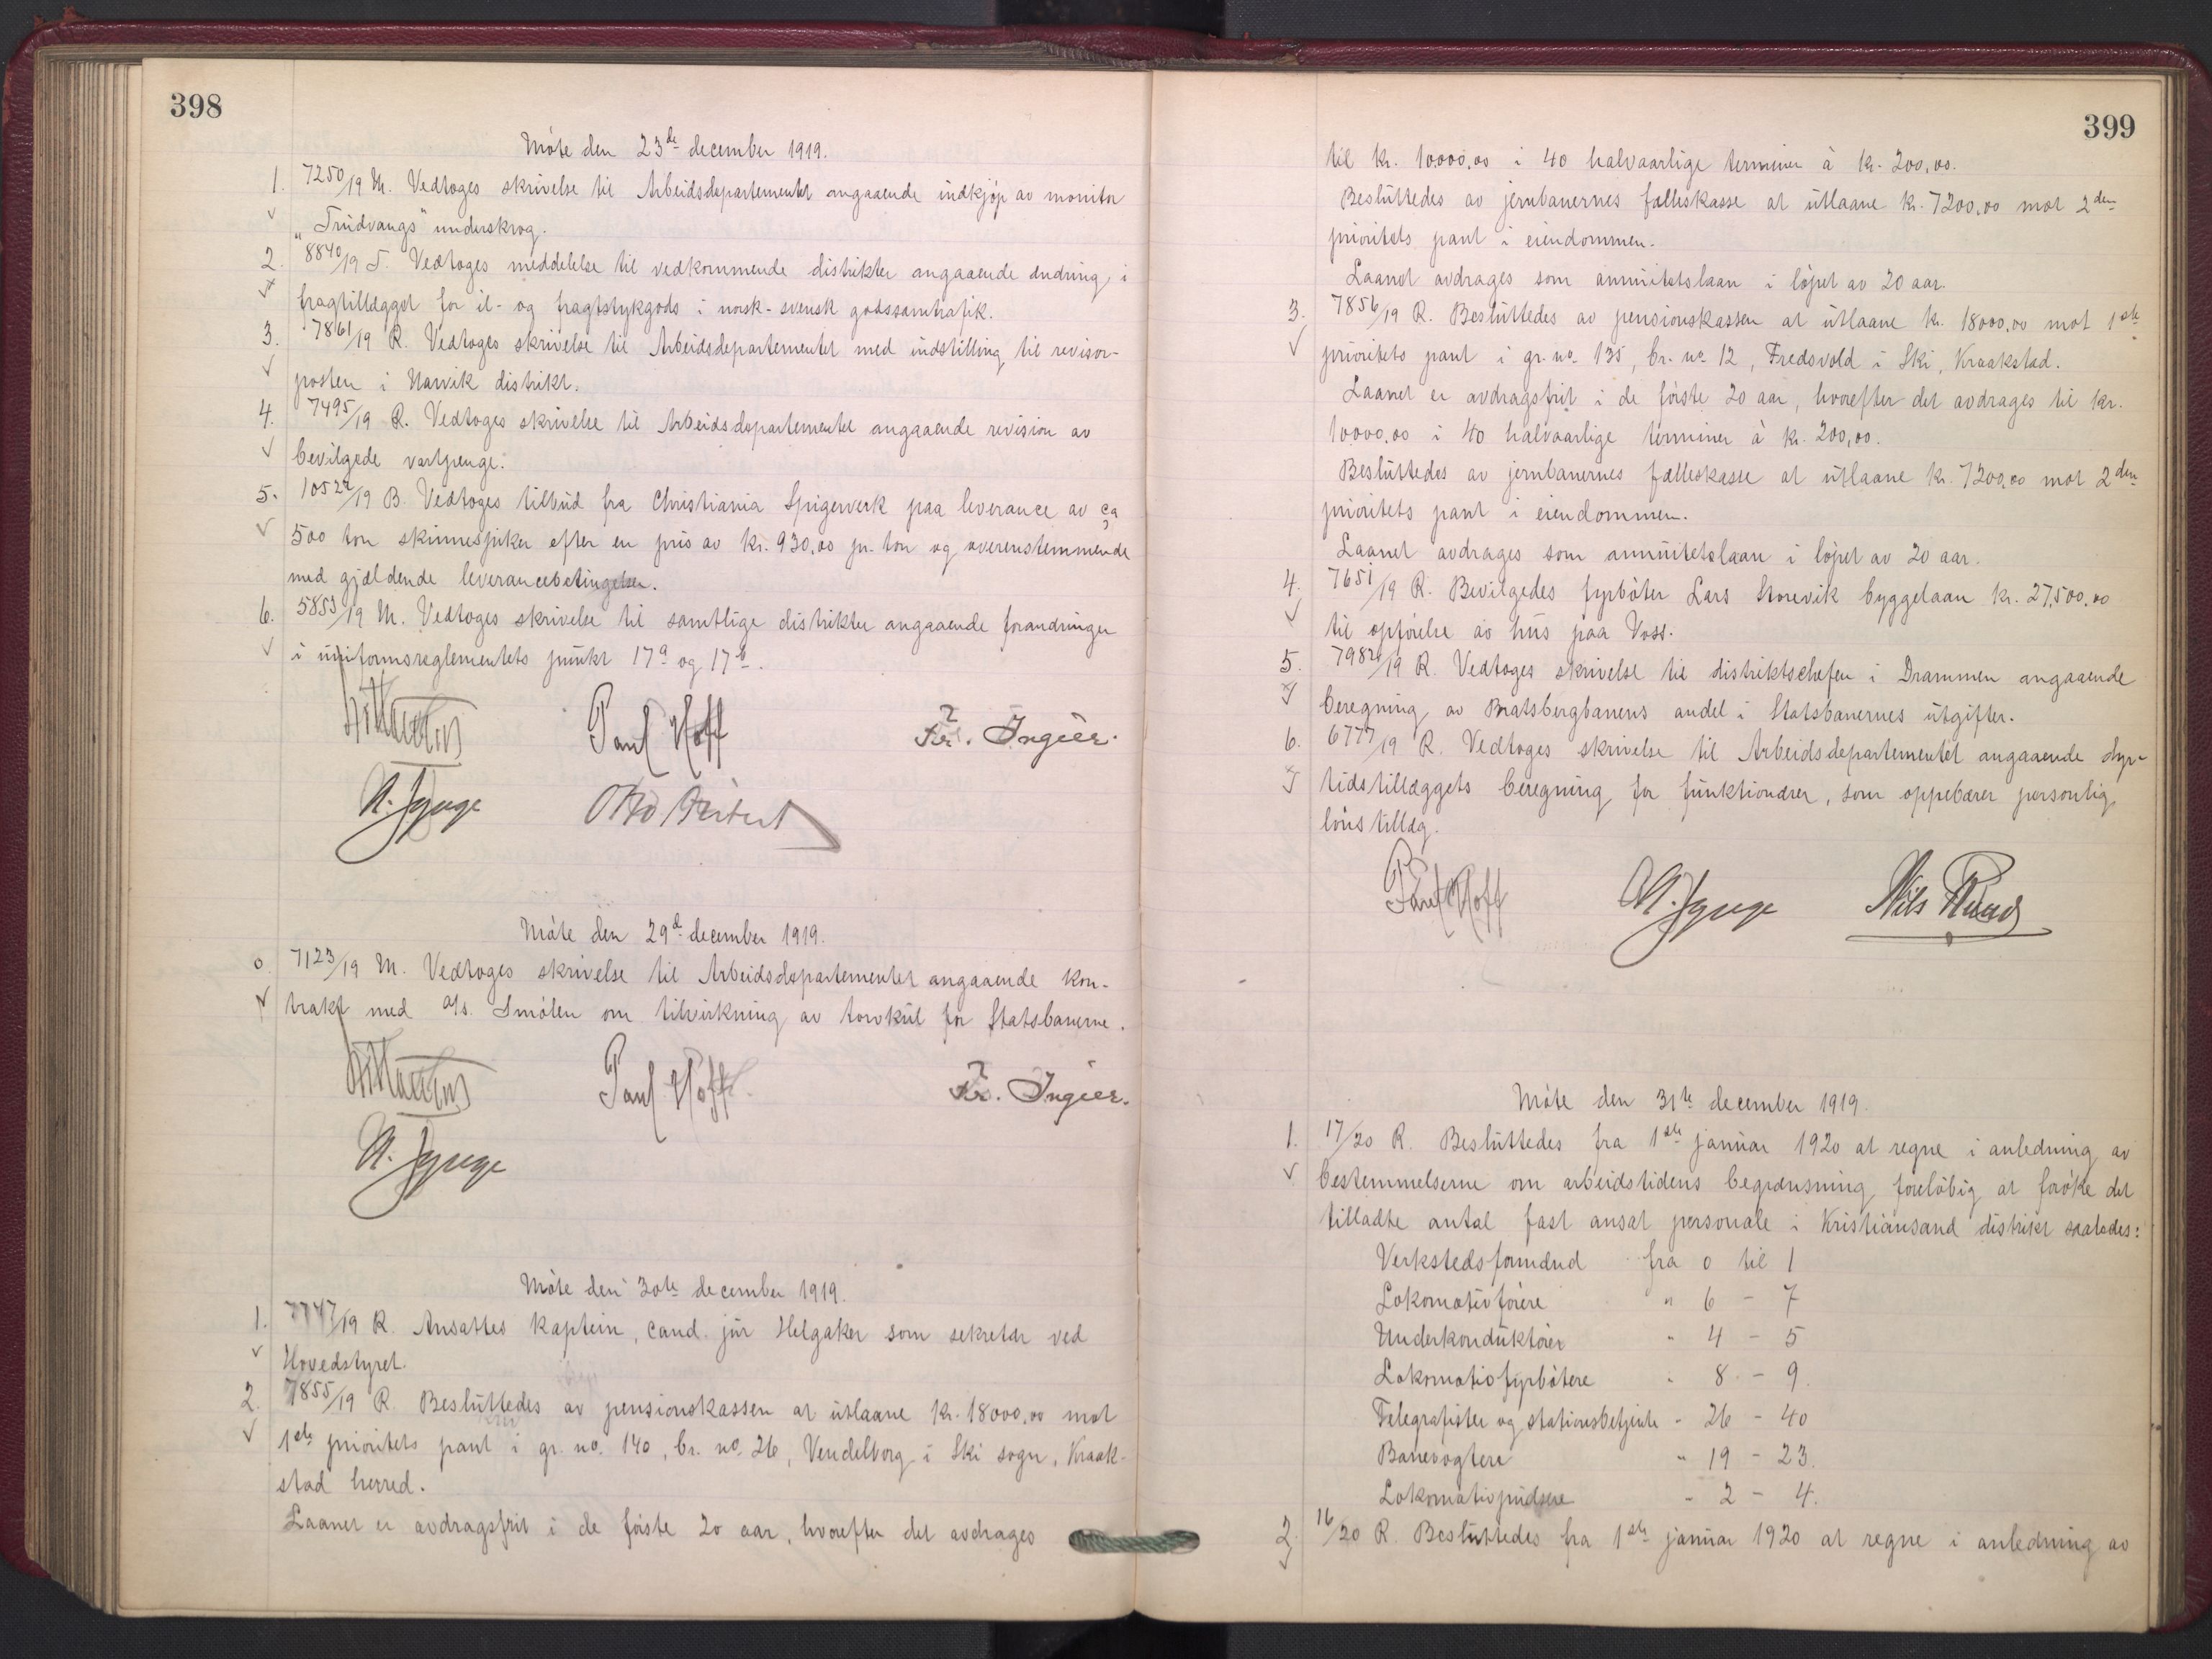 398
Møte den 23de december 1919.
1. 7250/19 M. Vedtoges skrivelse til Arbeidsdepartementet angaaende indkjøp av monitor
"Trudvangs" underskrog.
2. 8840/19 T. Vedtoges meddelelse til vedkommende distrikter angaaende ændring i
fragttillægget for il- og fragtstykgods i norsk-svensk godssamtrafik.
3. 7861/19 R. Vedtoges skrivelse til Arbeidsdepartementet med indstilling til revisor-
posten i Narvik distrikt.
4. 7495/19 R. Vedtoges skrivelse til Arbeidsdepartementet angaaende revision av
bevilgede vartpenge.
5. 10522/19 B. Vedtoges tilbud fra Christiania Spigerverk paa leverance av ca
500 ton skinnespiker efter en pris av kr. 930,00 pr. ton og overenstemmende
med gjældende leverancebetingelser.
6. 5853/19 M. Vedtoges skrivelse til samtlige distrikter angaaende forandringer
i uniformsreglementets punkt 17a og 17b.
Paul Hoff Fr. Ingier.
Møte den 29de december 1919.
0. 7123/19 M. Vedtoges skrivelse til Arbeidsdepartementet angaaende kon-
trakt med A/s. Smølen om tilvirkning av torvkul for Statsbanerne.
Paul Hoff Fr. Ingier.
Møte den 30te december 1919.
1. 7747/19 R. Ansattes kaptein, cand. jur Helgaker som sekretær ved
Hovedstyret.
2. 7855/19 R. Besluttedes av pensionskassen at utlaane kr. 18000,00 mot
1ste prioritets pant i gr. no. 140, br. no. 26, Vendelborg i Ski sogn, Kraak-
stad herred.
Laanet er avdragsfrit i de første 20 aar, hvorefter det avdrages
399
til kr. 10000,00 i 40 halvaarlige terminer à kr. 200,00.
Besluttedes av jernbanernes fælleskasse at utlaane kr. 7200,00 mot 2den
prioritets pant i eiendommen.
Laanet avdrages som annuitetslaan i løpet av 20 aar.
3. 7856/19 R. Besluttedes av pensionskassen at utlaane kr. 18000,00 mot 1ste
prioritets pant i gr. no 135, br. no 12, Fredsvold i Ski, Kraakstad.
Laanet er avdragsfrit i de første 20 aar, hvorefter det avdrages til kr.
10000,00 i 40 halvaarlige terminer à kr. 200,00.
Besluttedes av jernbanernes fælleskasse at utlaane kr. 7200,00 mot 2den
prioritets pant i eiendommen.
Laanet avdrages som annuitetslaan i løpet av 20 aar.
4. 7651/19 R. Bevilgedes fyrbøter Lars Storevik byggelaan kr. 27,500,00
til opførelse av hus paa Voss.
5. 7982/19 R. Vedtoges skrivelse til distriktschefen i Drammen angaaende
beregning av Bratsbergbanens andel i Statsbanernes utgifter.
6. 6777/19 R. Vedtoges skrivelse til Arbeidsdepartementet angaaende dyr-
tidstillæggets beregning for funktionærer, som oppebærer personlig
lønstillæg.
Paul Hoff Nils Ruud
Møte den 31te december 1919.
1. 17/20 R. Besluttedes fra 1ste januar 1920 at regne i anledning av
bestemmelserne om arbeidstidens begrænsning foreløbig at forøke det
tilladte antal fast ansat personale i Kristiansand distrikt saaledes:
Verkstedsformænd fra 0 til 1
Lokomotivførere " 6 - 7
Underkonduktører " 4 - 5
Lokomotivfyrbøtere " 8 - 9.
Telegrafister og stationsbetjente " 26 - 40
Banevogtere " 19 - 23.
Lokomotivpudsere " 2 - 4.
2. 16/20 R. Besluttedes fra 1ste januar 1920 at regne i anledning av